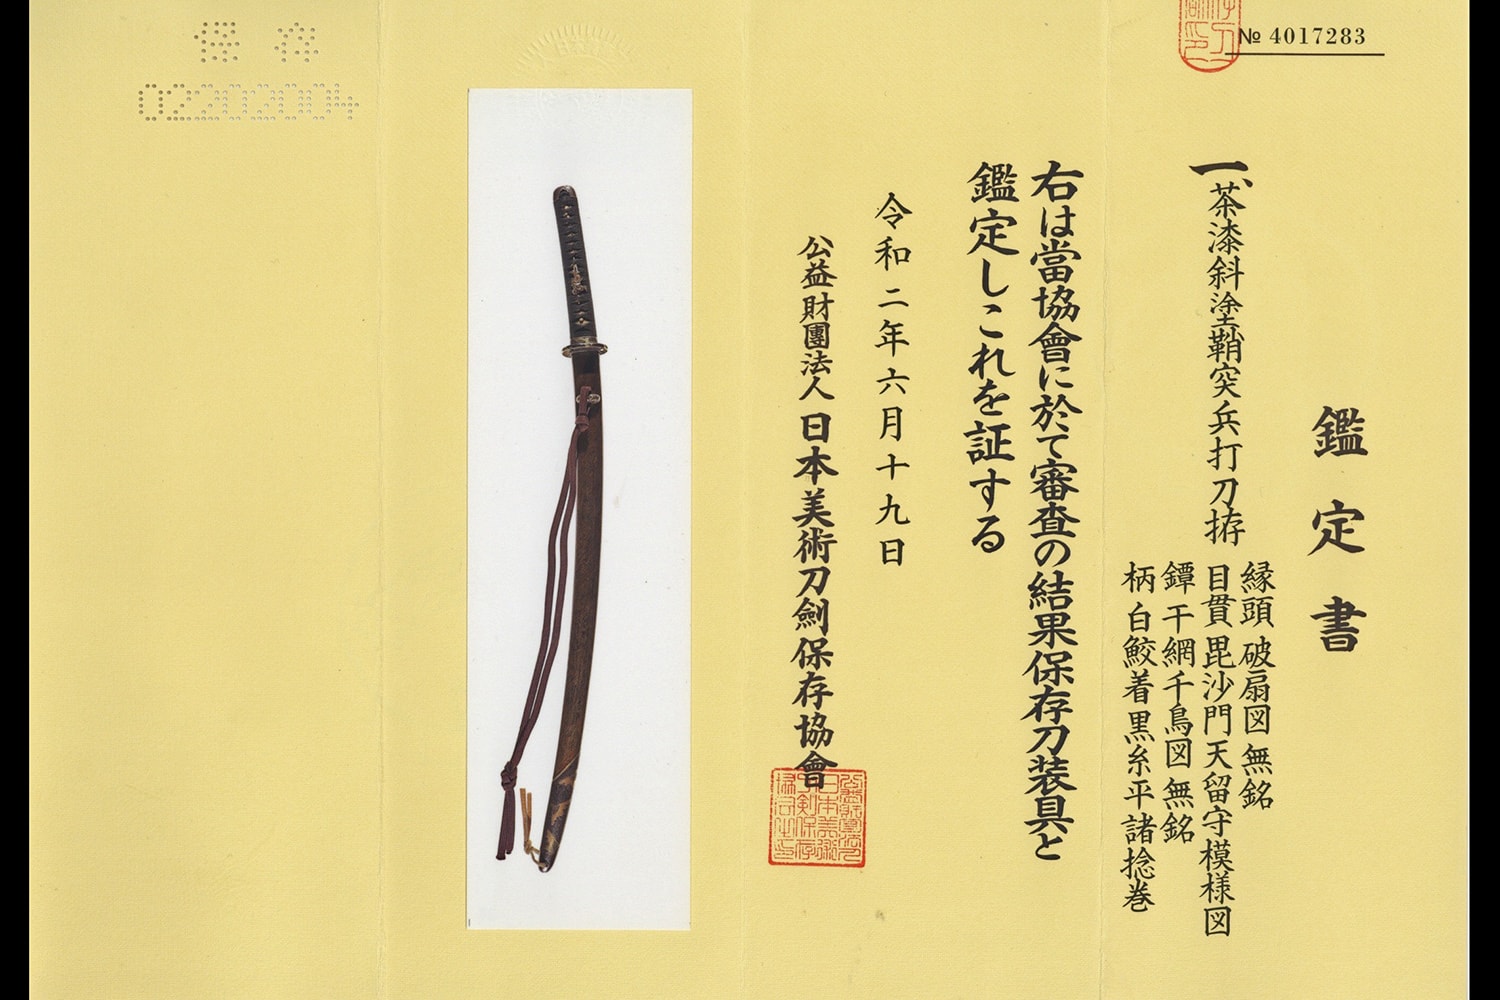 № 4017283
鑑定書
一、茶漆斜塗鞘突兵打刀拵
縁頭 破扇図 無銘
目貫 毘沙門天留守模様図
鐔 干網千鳥図 無銘
柄 白鮫着黒糸平諸捻巻
右は當協會に於て審査の結果保存刀装具と
鑑定しこれを証する
令和二年六月十九日
公益財團法人 日本美術刀劍保存協會
保存
02202004